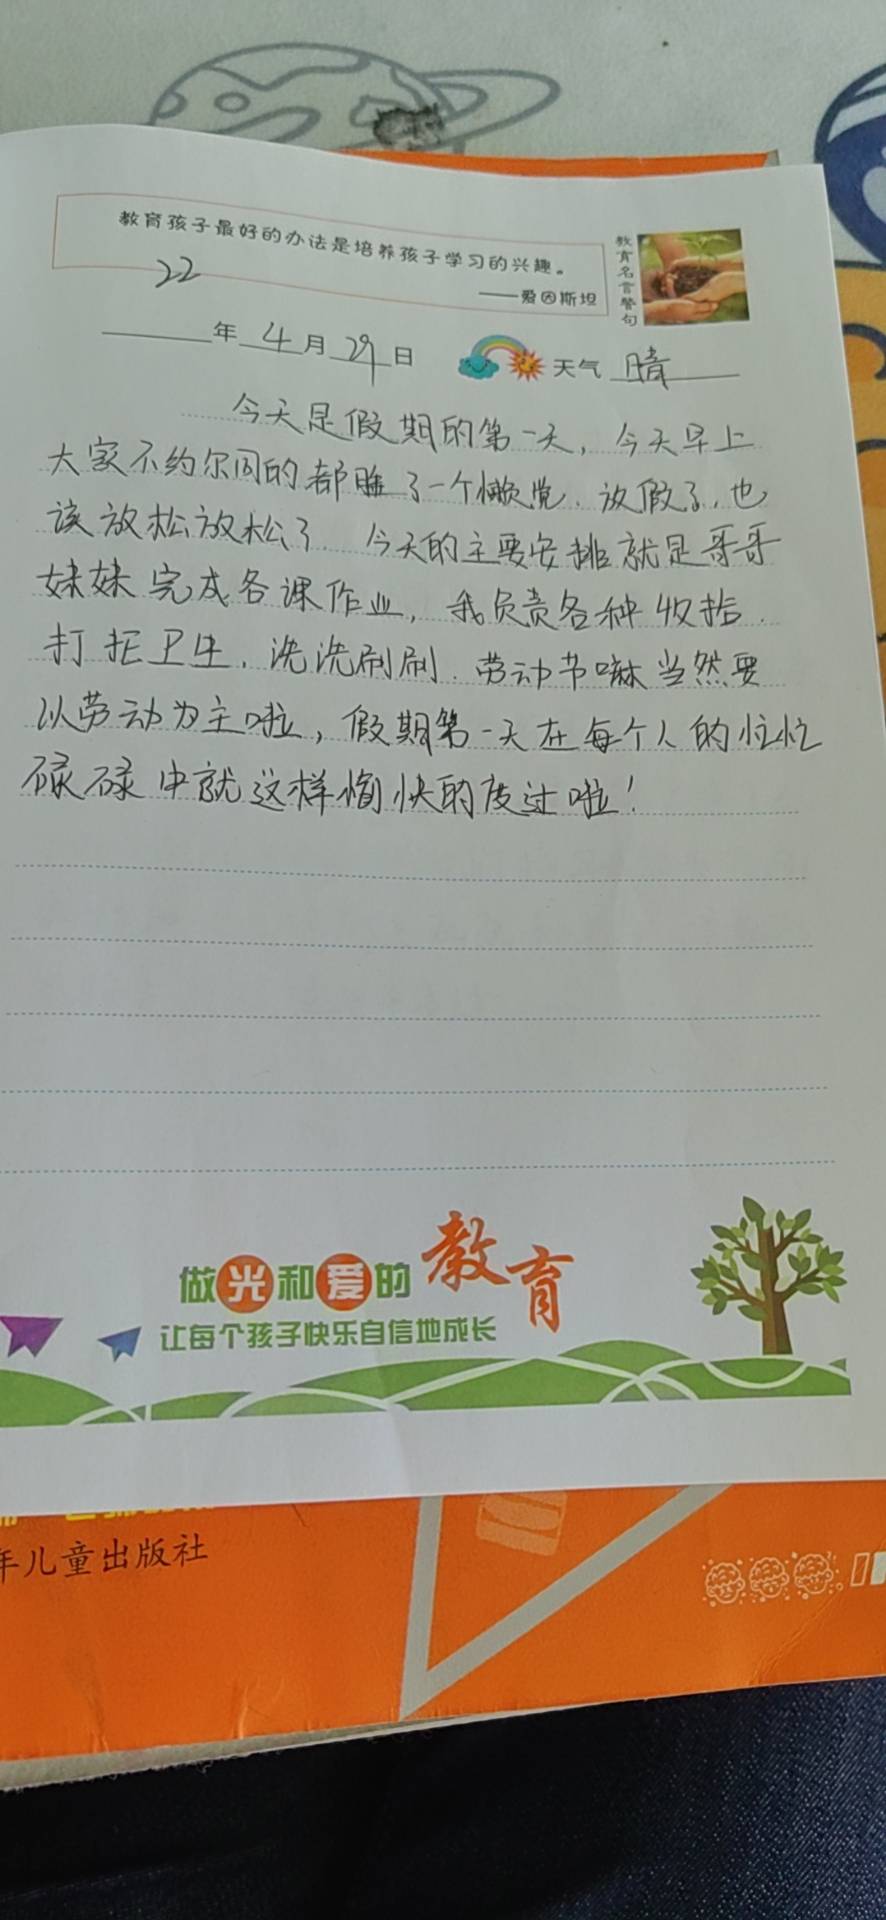 教育孩子最好的办法是培养孩子学习的兴趣。
——爱因斯坦
教育名言警句
22年4月29日 天气 晴
今天是假期的第一天，今天早上
大家不约尔同的都睡了一个懒觉．放假了，也
该放松放松了．今天的主要安排就是哥哥
妹妹完成各课作业，我负责各种收拾．
打扫卫生．洗洗刷刷．劳动节嘛当然要
以劳动为主啦，假期第一天在每个人的忙忙
碌碌中就这样愉快的度过啦！
做光和爱的教育
让每个孩子快乐自信地成长
年儿童出版社